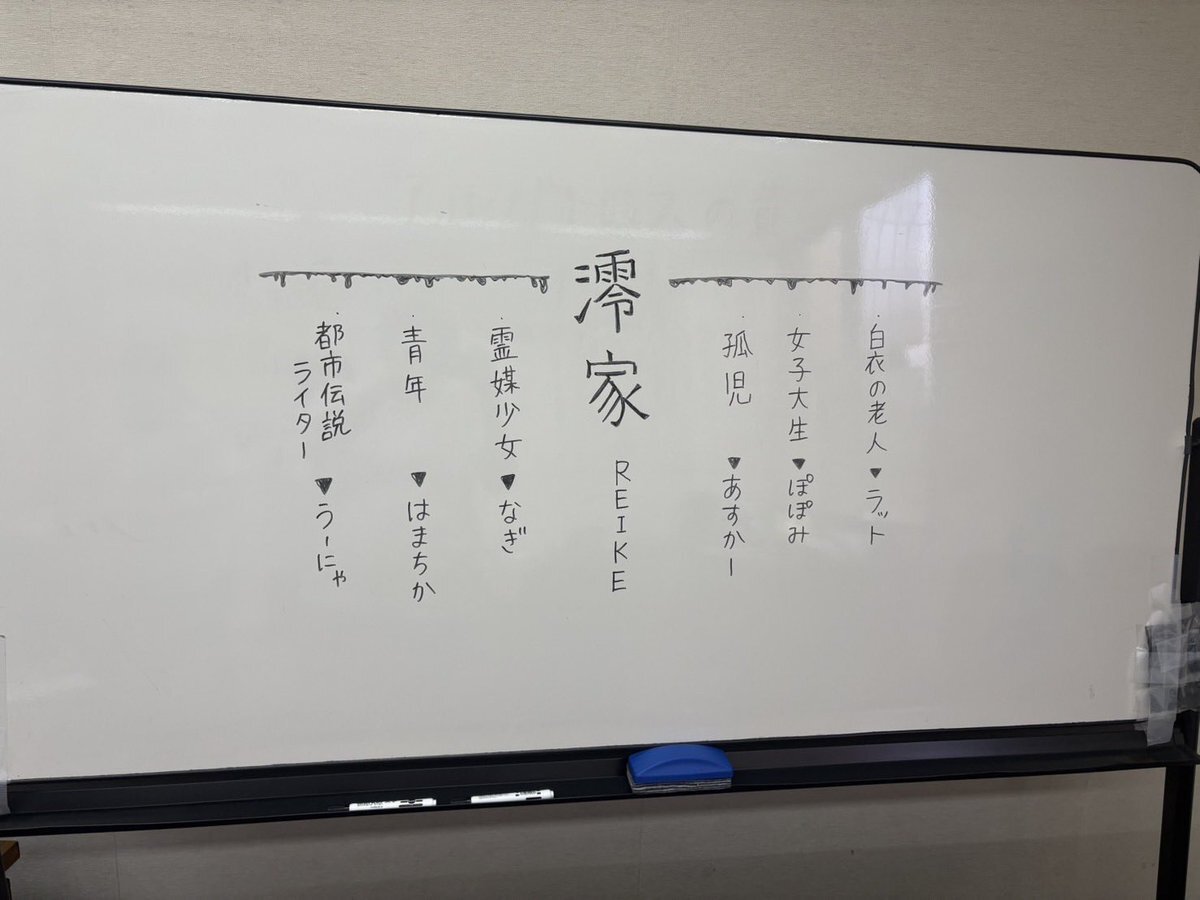 白衣の老人▼ラット
女子大生▼ぽぽみ
孤児▼あすかー
澪家
REIKE
霊媒少女▼なぎ
青年▼はまちか
都市伝説
ライター▼うーにゃ